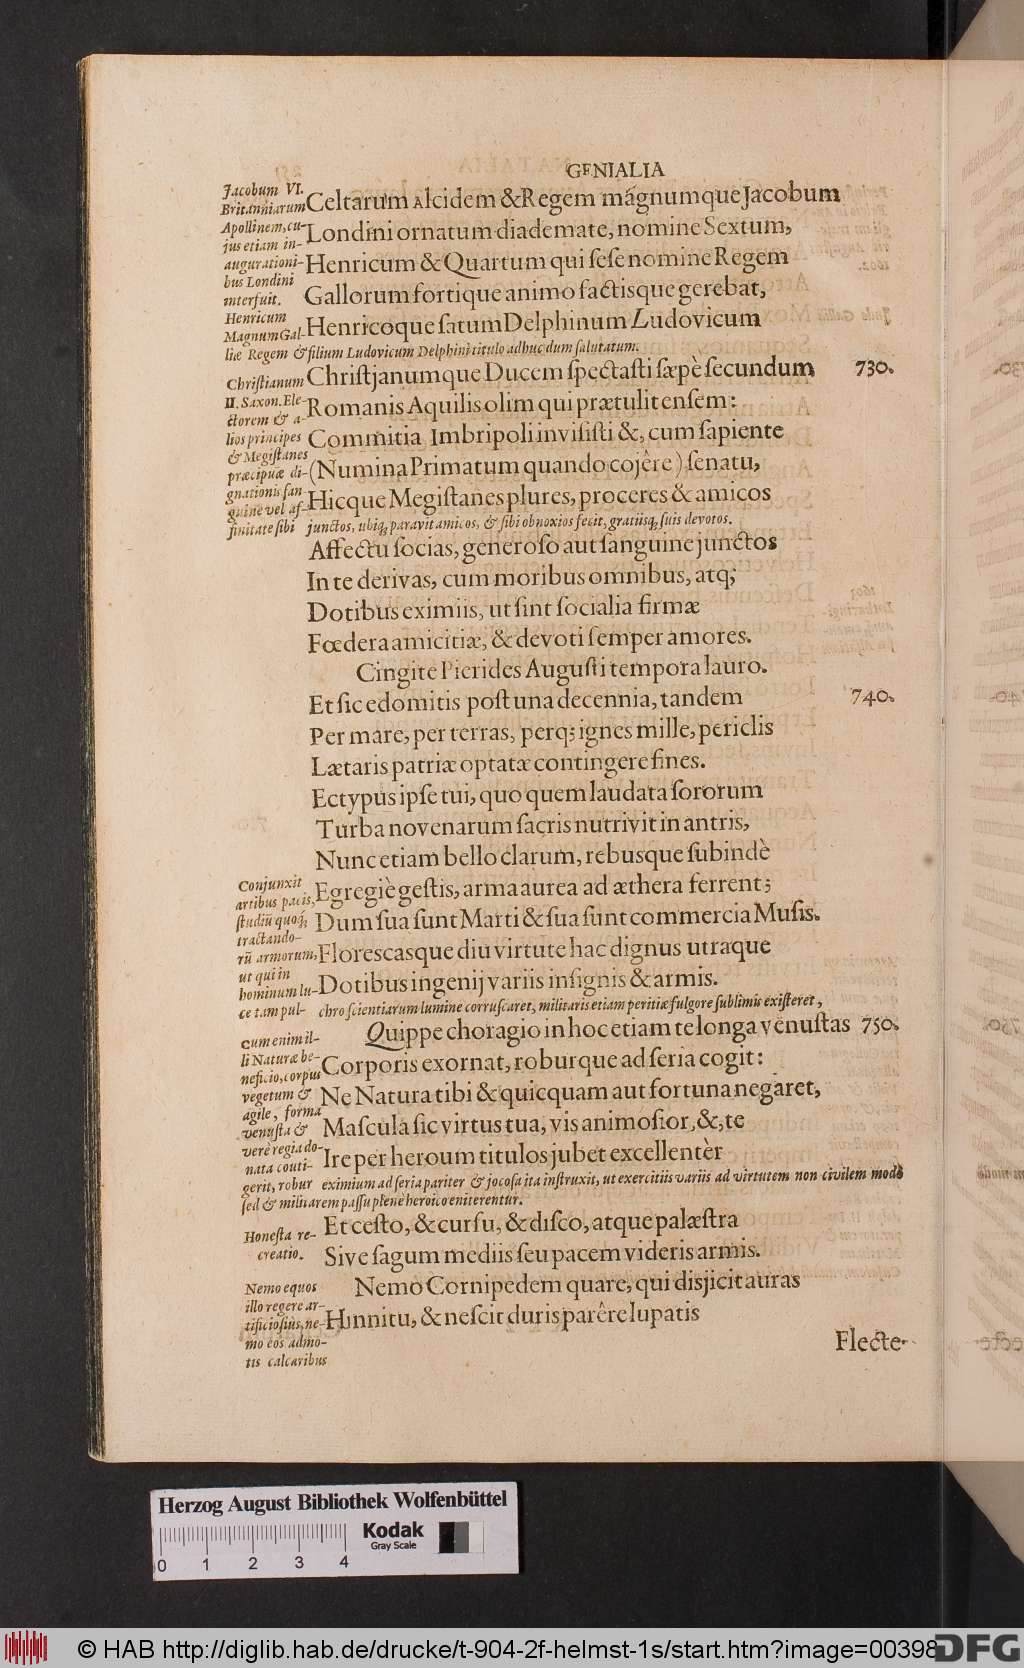 GENIALIA
Jacobum VI.
Britanniarum
Apollinem, cu-
jus etiam in-
augurationi-
bus Londini
interfuit.
Henricum
Magnum Gal-
liæ Regem & filium Ludovicum Delphini titulo adhuc dum salutatum.
Celtarum Alcidem & Regem mágnumque Jacobum
Londini ornatum diademate, nomine Sextum,
Henricum & Quartum qui sese nomine Regem
Gallorum fortique animo factisque gerebat,
Henricoque satum Delphinum Ludovicum
Christianum
II. Saxon. Ele-
ctorem & a-
lios principes
& Megistanes
præcipuæ di-
gnationis san
guine vel af-
finitate sibi junctos, ubiq; paravit amicos, & sibi obnoxios fecit, gratiisq; suis devotos.
Christjanumque Ducem spectasti sæpè secundum 730.
Romanis Aquilis olim qui prætulit ensem:
Commitia Imbripoli invisisti &, cum sapiente
(Numina Primatum quando cojêre) senatu,
Hicque Megistanes plures, proceres & amicos
Affectu socias, generoso aut sanguine junctos
In te derivas, cum moribus omnibus, atq;
Dotibus eximiis, ut sint socialia firmæ
Fœdera amicitiæ, & devoti semper amores.
Cingite Pierides Augusti tempora lauro.
Et sic edomitis post una decennia, tandem 740.
Per mare, per terras, perq; ignes mille, periclis
Lætaris patriæ optatæ contingere fines.
Ectypus ipse tui, quo quem laudata sororum
Turba novenarum sacris nutrivit in antris,
Nunc etiam bello clarum, rebusque subindè
Egregiè gestis, arma aurea ad æthera ferrent;
Dum sua sunt Marti & sua sunt commercia Musis.
Florescasque diu virtute hac dignus utraque
Dotibus ingenij variis insignis & armis.
Conjunxit
artibus pacis,
studiū quoq;
tractando-
rū armorum,
ut qui in
hominum lu-
ce tam pul- chro scientiarum lumine corruscaret, militaris etiam peritiæ fulgore sublimis existeret,
Quippe choragio in hoc etiam te longa venustas 750.
Corporis exornat, roburque ad seria cogit:
Ne Natura tibi & quicquam aut fortuna negaret,
Mascula sic virtus tua, vis animosior, &, te
Ire per heroum titulos jubet excellentèr
cum enim il-
li Naturæ be-
neficio, corpus
vegetum &
agile, forma
venusta &
verè regia do-
nata conti-
gerit, robur eximium ad seria pariter & jocosa ita instruxit, ut exercitiis variis ad virtutem non civilem modò
sed & militarem passu plenè heroico eniterentur.
Et cesto, & cursu, & disco, atque palæstra
Sive sagum mediis seu pacem videris armis.
Honesta re-
creatio.
Nemo Cornipedem quare, qui disjicit auras
Hinnitu, & nescit duris parêre lupatis
Nemo equos
illo regere ar-
tificiosius, ne-
mo eos admo-
tis calcaribus
Flecte-
Herzog August Bibliothek Wolfenbüttel
Kodak
Gray Scale
0 1 2 3 4
© HAB http://diglib.hab.de/drucke/t-904-2f-helmst-1s/start.htm?image=00398
DFG